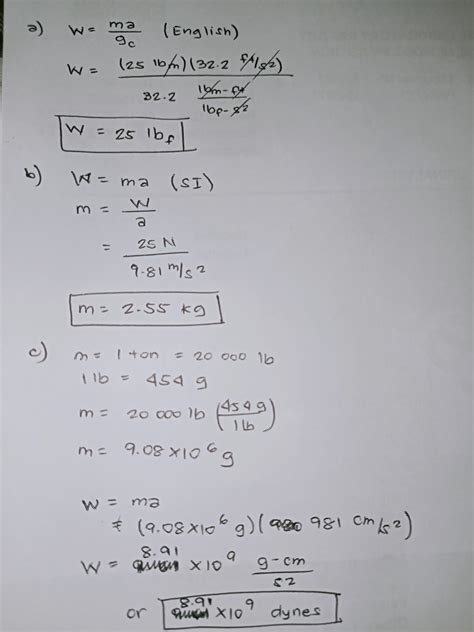 a) W = ma/gc (English)
W = (25 lbm)(32.2 ft/s2) / 32.2 lbm-ft/lbf-s2
W = 25 lbf
b) W = ma (SI)
m = W/a
= 25 N / 9.81 m/s2
m = 2.55 kg
c) m = 1 ton = 20 000 lb
1 lb = 454 g
m = 20 000 lb (454 g / 1 lb)
m = 9.08 × 10^6 g
W = ma
= (9.08×10^6 g)(981 cm/s2)
W = 8.91 ×10^9 g-cm/s2
or 8.91 ×10^9 dynes